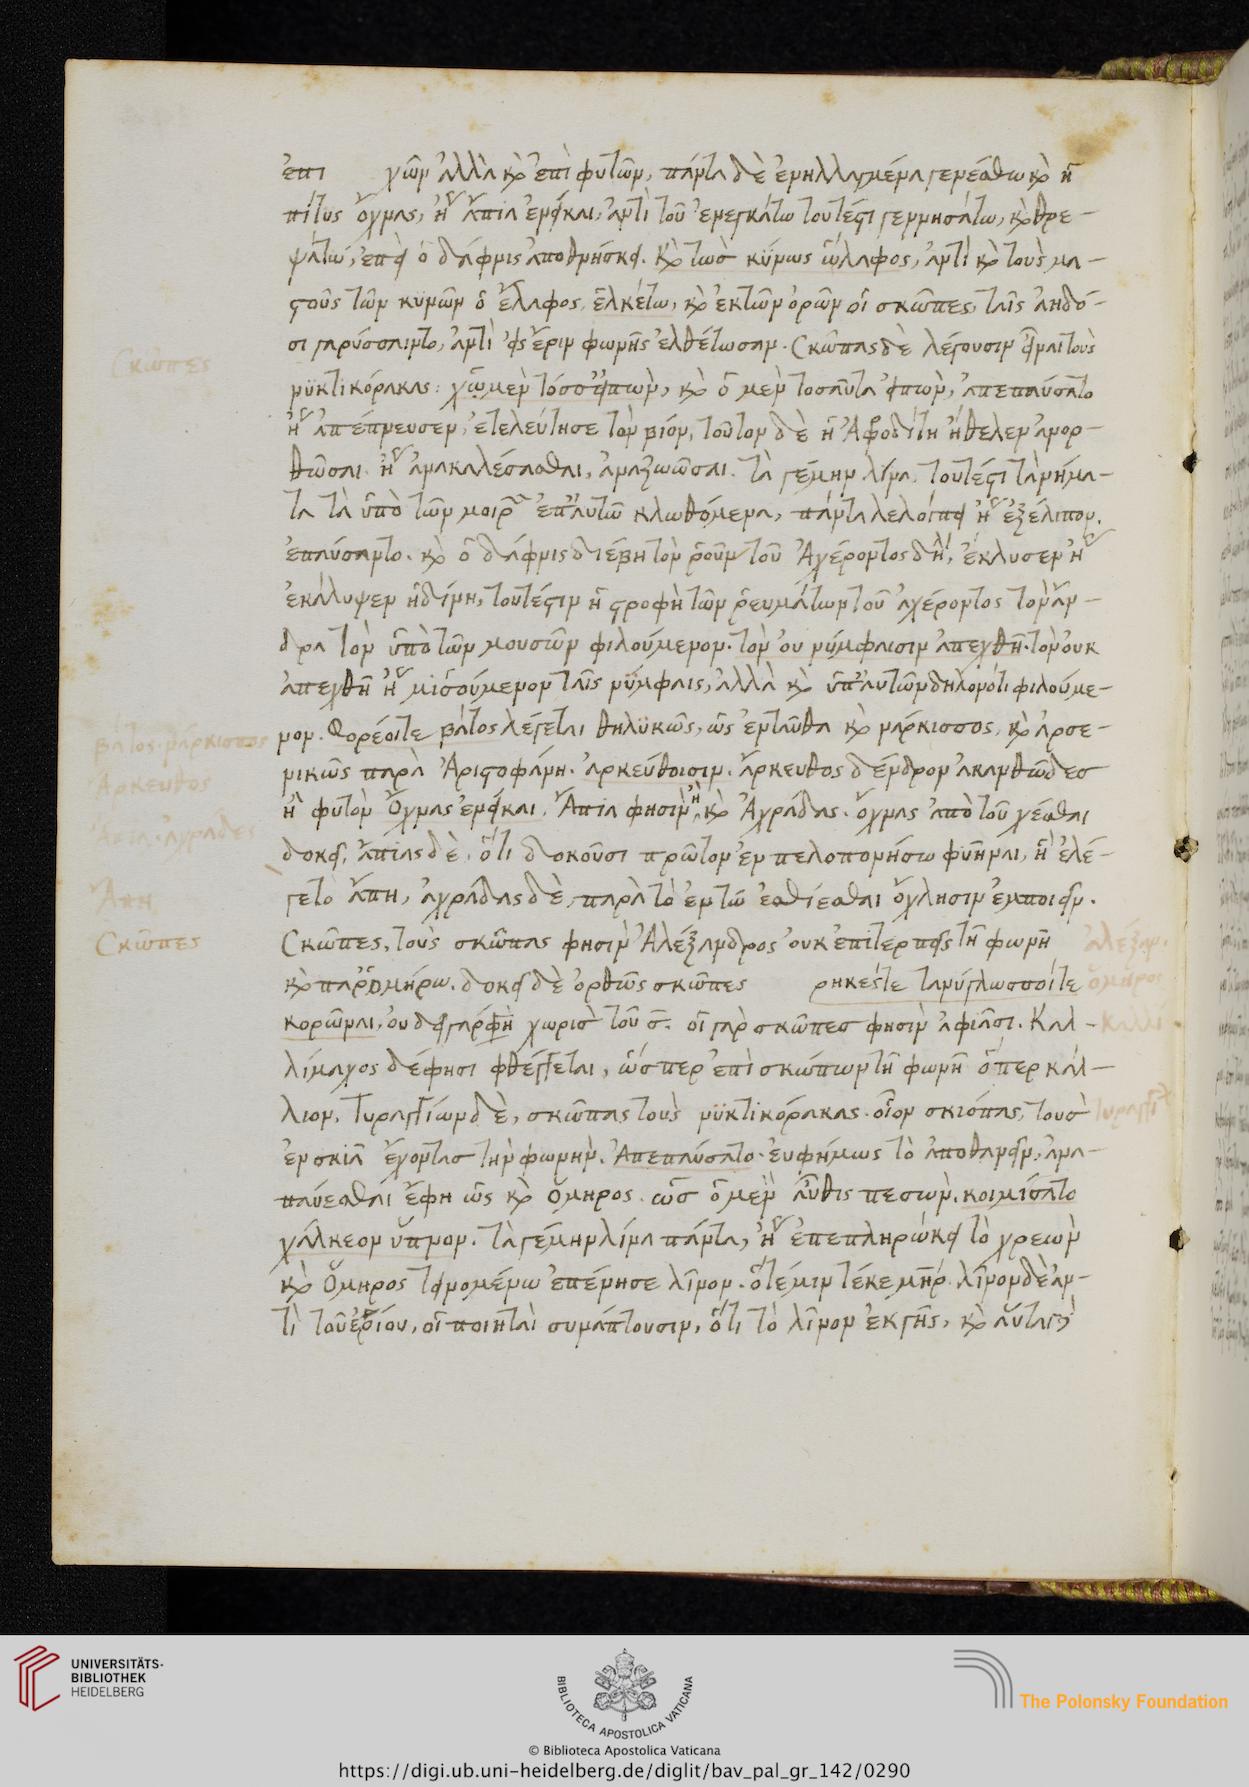 ἐπι χῶν ἀλλὰ καὶ ἐπὶ φυτῶν, πάντα δὲ ἐνηλλαγμένα γενέσθω καὶ ἡ
πίτυς ὄχνας, ἤγουν ἄπια ἐνείκαι, ἀντὶ τοῦ ἐνεγκάτω τουτέστι γεννησάτω, καὶ θρε-
ψάτω, ἐπεὶ ὁ δάφνις ἀποθνήσκει. καὶ τὼς κύνως ὥλαφος, ἀντὶ καὶ τοὺς μα-
στοὺς τῶν κυνῶν ὁ ἔλαφος, ἑλκέτω, καὶ ἐκ τῶν ὀρῶν οἱ σκῶπες, ταῖς ἀηδό-
σι γαρύσσαιντο, ἀντὶ εἰς ἔριν φωνῆς ἐλθέτωσαν. Σκῶπας δὲ λέγουσιν εἶναι τοὺς
νυκτικόρακας: χὢ μὲν τόσσ' εἰπὼν, καὶ ὁ μὲν τοσαῦτα εἰπὼν, ἀπεπαύσατο
ἤγουν ἀπέπνευσεν, ἐτελεύτησε τὸν βίον, τοῦτον δὲ ἡ Ἀφροδίτη ἤθελεν ἀνορ-
θῶσαι ἤγουν ἀνακαλέσασθαι, ἀναζωῶσαι. τὰ γέ μὴν λίνα, τουτέστι τὰ νήμα-
τα τὰ ὑπὸ τῶν μοιρῶν ἐπ' αὐτῶ κλωθόμενα, πάντα λελοίπει ἤγουν ἐξέλιπον,
ἐπαύσαντο. καὶ ὁ δάφνις διέβη τὸν ῥοῦν τοῦ Ἀχέροντος δηλ, ἔκλυσεν ἤγουν
ἐκάλυψεν ἡ δίνη, τουτέστιν ἡ στροφὴ τῶν ῥευμάτων τοῦ ἀχέροντος τὸν ἄν-
δρα τὸν ὑπὸ τῶν μουσῶν φιλούμενον. τὸν οὐ νύμφαισιν ἀπεχθῆ. τὸν οὐκ
ἀπεχθῆ ἤγουν μισούμενον ταῖς νύμφαις, ἀλλὰ καὶ ὑπ' αὐτῶν δηλονότι φιλούμε-
νον. Φορέοιτε βάτος λέγεται θηλυκῶς, ὡς ἐνταῦθα καὶ νάρκισσος, καὶ ἀρσε-
νικῶς παρὰ Ἀριστοφάνη. ἀρκεύθοισιν. ἄρκευθος δένδρον ἀκανθῶδες
ἢ φυτὸν Ὄχνας ἐνείκαι. Ἄπια φησὶν ἢ καὶ Ἀχράδας. ὄχνας ἀπὸ τοῦ χέσθαι
δοκεῖ, ἄπιας δὲ, ὅτι δοκοῦσι πρῶτον ἐν πελοπονήσω φυῆναι, ἣ ἐλέ-
γετο ἄπη, ἀχράδας δὲ, παρὰ τὸ ἐν τῶ ἐσθίεσθαι ὄχλησιν ἐμποιεῖν.
Σκῶπες, τοὺς σκῶπας φησὶν Ἀλέξανδρος οὐκ ἐπιτερπεῖς τῆ φωνῆ
καὶ παρ' Ὁμήρω. δοκεῖ δὲ ὀρθῶς σκῶπες ρηκεστε τανύγλωσσοίτε
κορῶναι, οὐ δεῖ γάρ φη χωρὶς τοῦ σ. οἱ γὰρ σκῶπες φησὶν ἀφιᾶσι. Καλ-
λίμαχος δέ φησι φθέγγεται, ὥσπερ ἐπὶ σκώπων τῆ φωνῆ ὅπερ κάλ-
λιον. Τυραγγίων δὲ, σκῶπας τοὺς νυκτικόρακας. οἷον σκιόπας, τοὺς
ἐν σκιᾶ ἔχοντας τὴν φωνὴν. Ἀπεπαύσατο. εὐφήμως τὸ ἀποθανεῖν, ἀνα-
παύεσθαι ἔφη ὡς καὶ Ὅμηρος. ὣς ὁ μὲν αὖθις πεσὼν, κοιμίσατο
χάλκεον ὕπνον. Τὰ γέ μὴν λίνα πάντα, ἤγουν ἐπεπληρώκει τὸ χρεὼν
καὶ Ὅμηρος γεινομένω ἐπένησε λῖνον. ὅτε μιν τέκε μήτηρ. λῖνον δὲ ἀν-
τὶ τοῦ ἐρίου, οἱ ποιηταὶ συνάπτουσιν, ὅτι τὸ λῖνον ἐκ γῆς, καὶ αὕτη
Σκῶπες
βάτος. νάρκισσος
Ἄρκευθος
Ἄπια. ἀχράδες
Ἄπη
Σκῶπες
ἀλέξαν.
ὅμηρος
Καλλί
τυραγγί
UNIVERSITÄTS-
BIBLIOTHEK
HEIDELBERG
BIBLIOTECA APOSTOLICA VATICANA
The Polonsky Foundation
© Biblioteca Apostolica Vaticana
https://digi.ub.uni-heidelberg.de/diglit/bav_pal_gr_142/0290